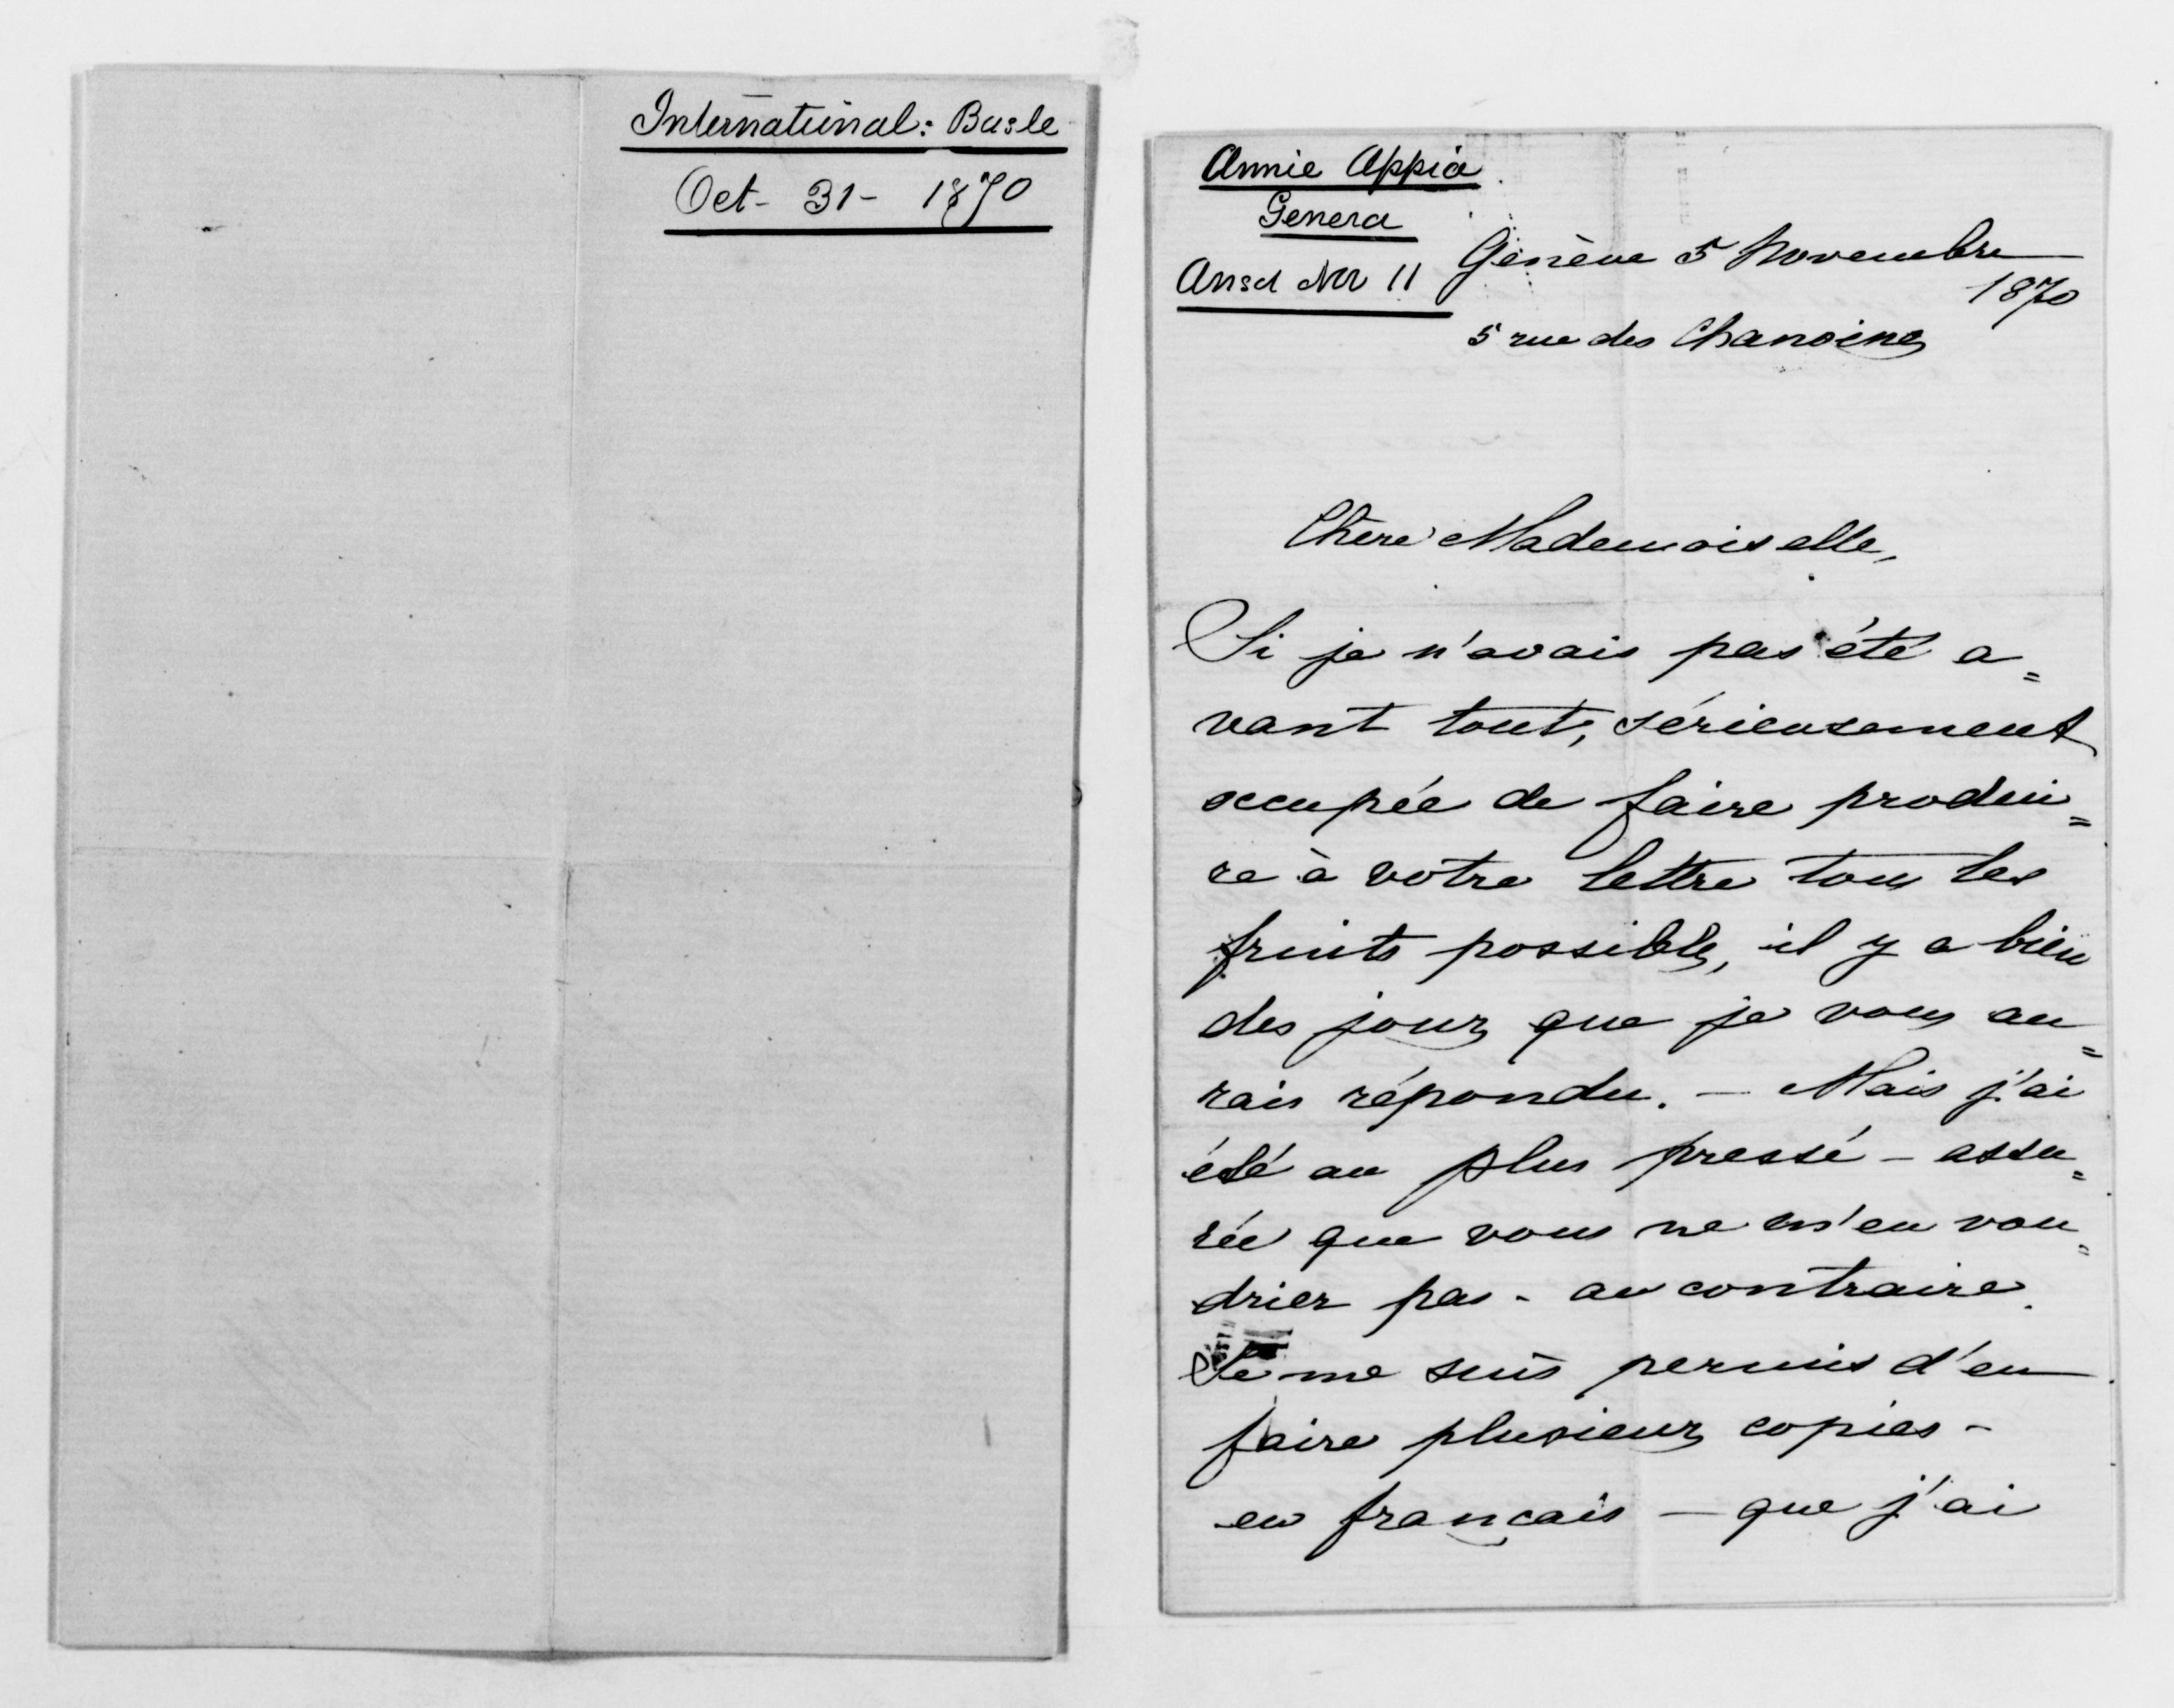 International: Basle
Oct- 31- 1870
Annie Appia
Geneva
Ansd Nov 11
Genève 5 Novembre
1870
5 rue des Chanoines
Chère Mademoiselle,
Si je n'avais pas été a=
vant tout, sérieusement
occupée de faire produi=
re à votre lettre tous les
fruits possibles, il y a bien
des jours que je vous au=
rais répondu. — Mais j'ai
été au plus pressé - assu=
rée que vous ne m'en vou=
driez pas - au contraire.
Je me suis permis d'en
faire plusieurs copies -
en français — que j'ai